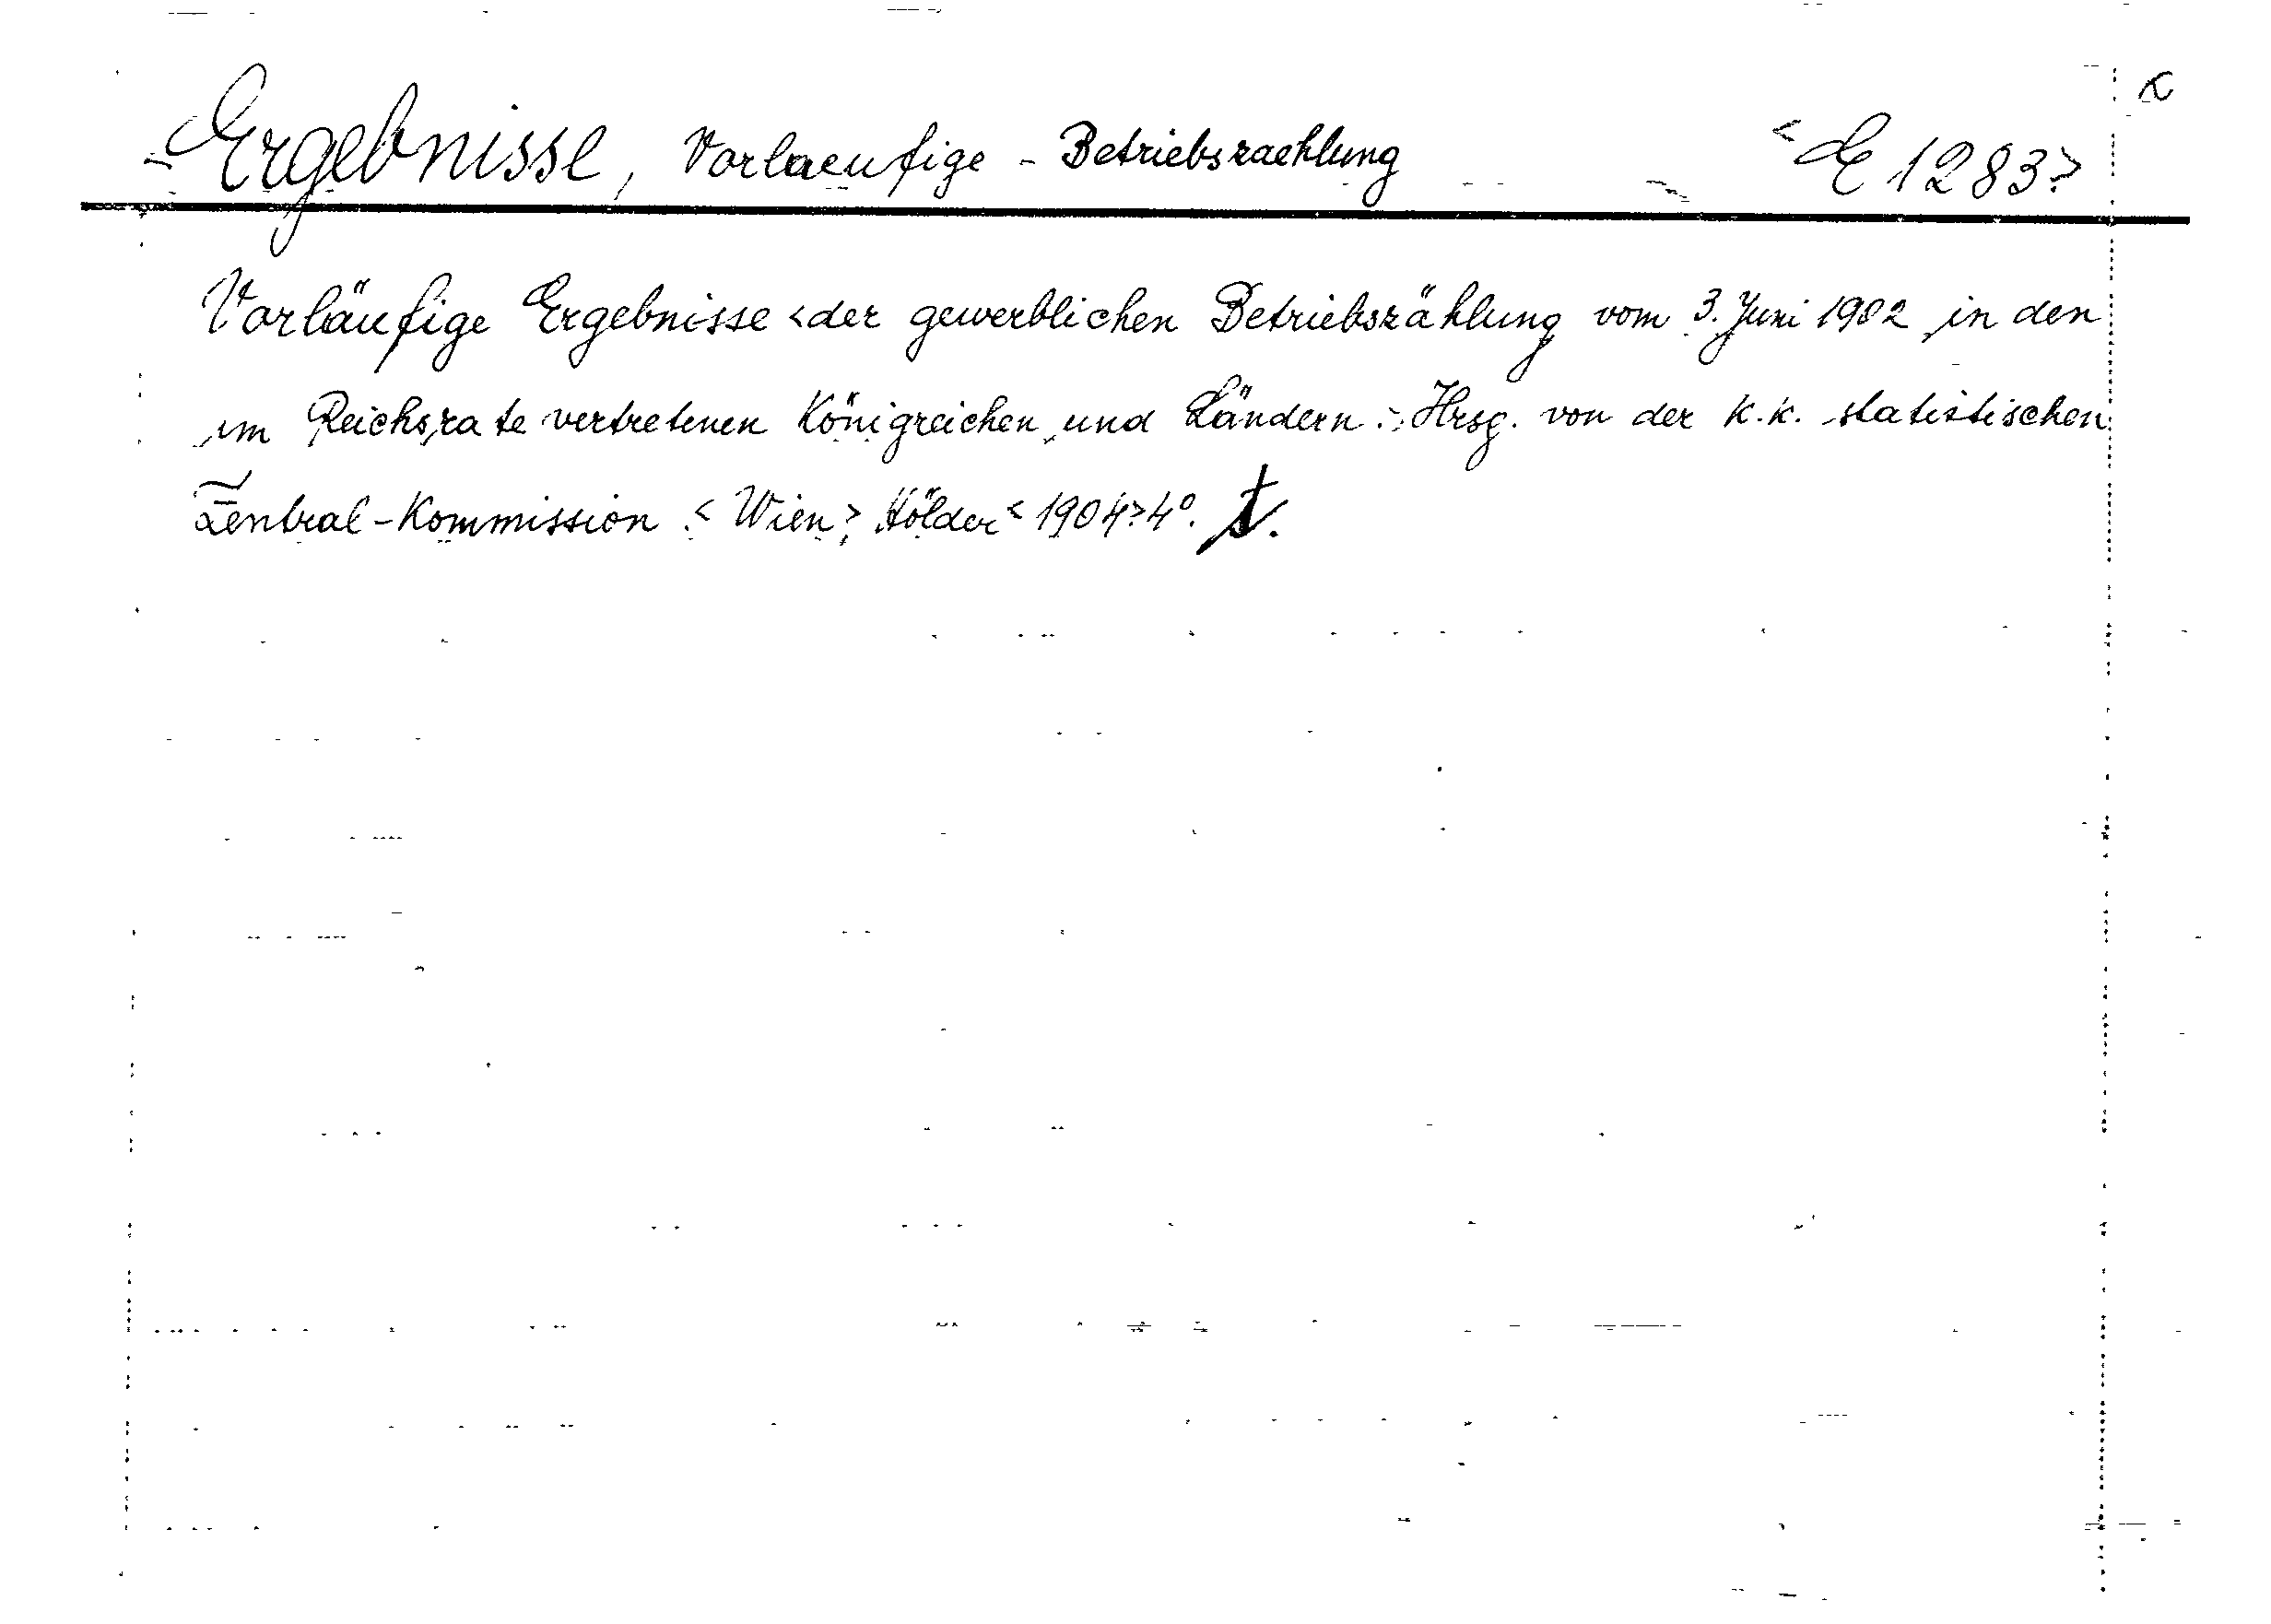 K
Ergebnisse, Vorlaeufige - Betriebszaehlung <E 1283>
Vorläufige Ergebnisse <der gewerblichen Betriebszählung vom 3. Juni 1902 in den
im Reichsrate vertretenen Königreichen und Ländern.> Hrsg. von der K.K. statistischen
Zentral-Kommission. <Wien> Hölder <1904> 4°.